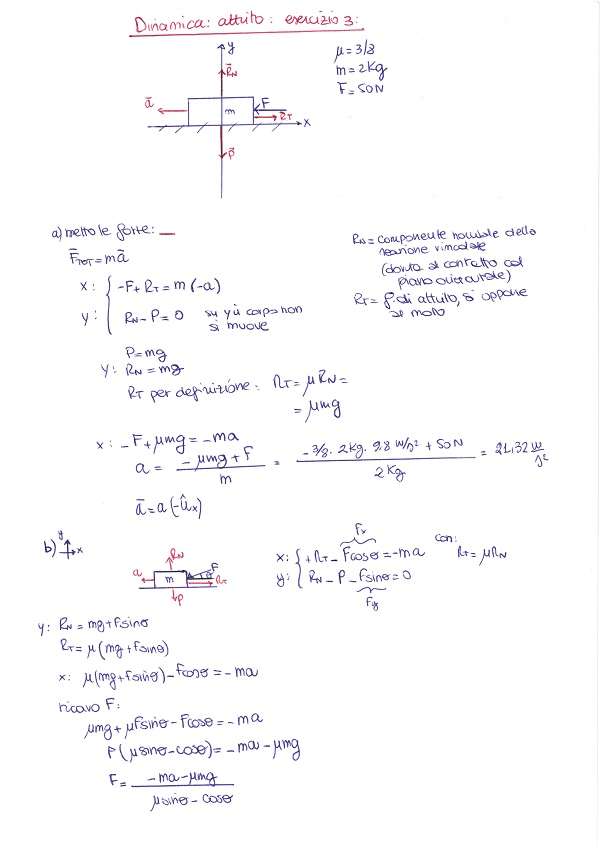 Dinamica: attrito: esercizio 3:
y
R̄N
μ = 3/8
m = 2Kg
F = 50N
ā
m
F̄
RT
x
P̄
a) metto le forze:
F̄TOT = mā
x: { -F + RT = m(-a)
y: { RN - P = 0 su y il corpo non si muove
RN = componente normale della
reazione vincolare
(dovuta al contatto col
piano orizzontale)
RT = f. di attrito, si oppone
al moto
P = mg
y: RN = mg
RT per definizione: RT = μRN =
= μmg
x: -F + μmg = -ma
a = (-μmg + F)/m = (-3/8 · 2Kg · 9.8 m/s² + 50N)/2Kg = 21.32 m/s²
ā = a(-ûx)
b) y x
RN
a
m
F
θ
RT
P
Fx
x: { +RT - Fcosθ = -ma
con:
RT = μRN
y: { RN - P - Fsinθ = 0
Fy
y: RN = mg + Fsinθ
RT = μ(mg + Fsinθ)
x: μ(mg + Fsinθ) - Fcosθ = -ma
ricavo F:
μmg + μFsinθ - Fcosθ = -ma
F(μsinθ - cosθ) = -ma - μmg
F = (-ma - μmg)/(μsinθ - cosθ)